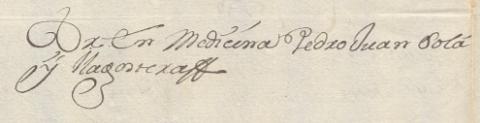 Dr. En Medicina Pedro Juan Solá
y